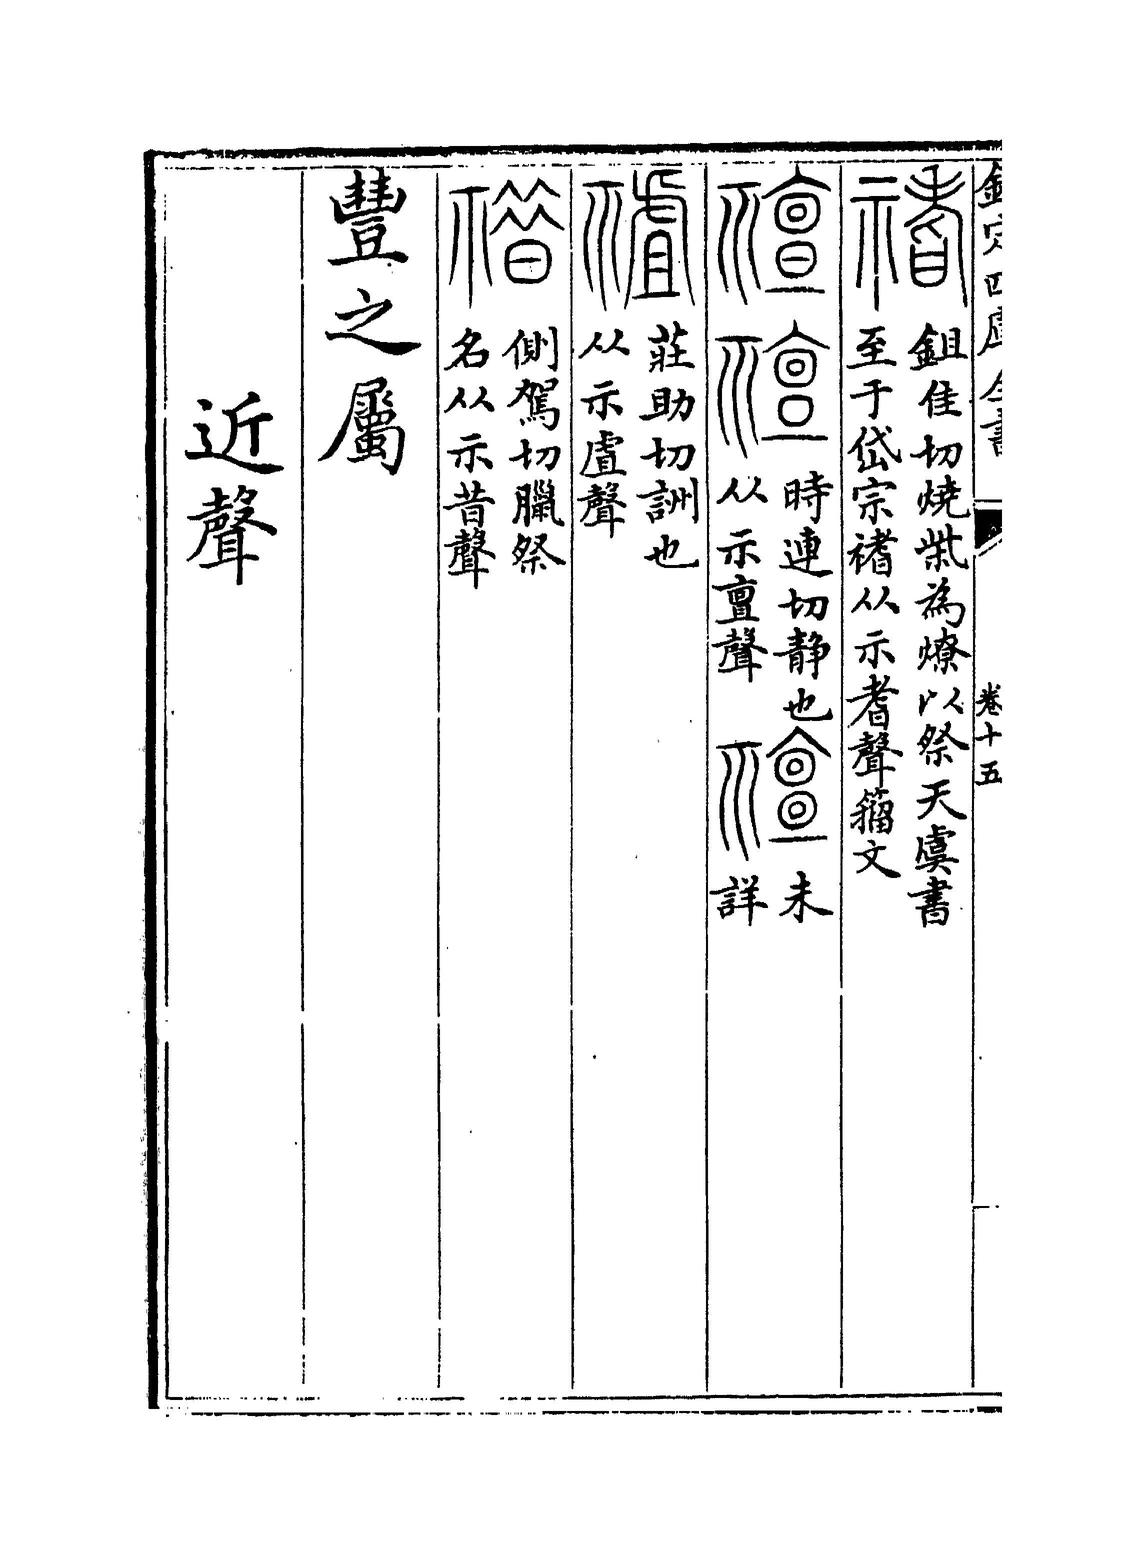 欽定四庫全書
卷十五
鉏佳切燒祡為燎以祭天虞書
至于岱宗禇从示耆聲籀文
時連切静也
从示亶聲
未
詳
莊助切詶也
从示虘聲
側駕切臘祭
名从示昔聲
豐之屬
近聲